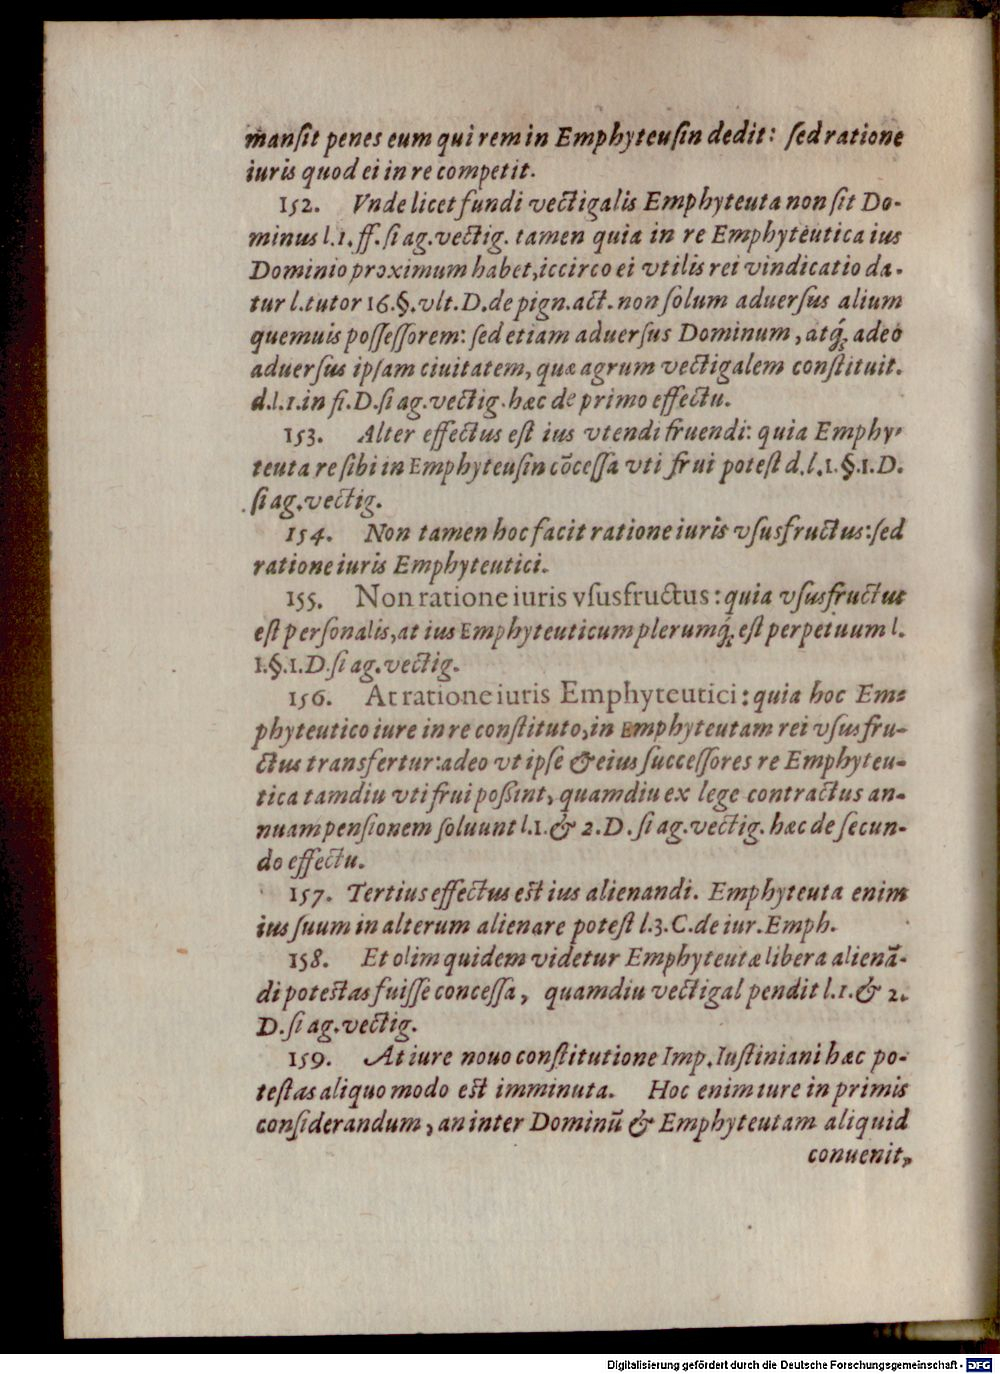 manſit penes eum qui rem in Emphyteuſin dedit: ſed ratione
iuris quod ei in re competit.
152. Vnde licet fundi vectigalis Emphyteuta non ſit Do-
minus l.1.ff.ſi ag.vectig. tamen quia in re Emphyteutica ius
Dominio proximum habet, iccirco ei vtilis rei vindicatio da-
tur l.tutor 16.§.vlt.D.de pign.act. non ſolum aduerſus alium
quemuis poſſeſſorem: ſed etiam aduerſus Dominum, atq́; adeo
aduerſus ipſam ciuitatem, quæ agrum vectigalem conſtituit.
d.l.1.in fi.D.ſi ag.vectig. hæc de primo effectu.
153. Alter effectus eſt ius vtendi fruendi: quia Emphy-
teuta re ſibi in Emphyteuſin cōceſſa vti frui poteſt d.l.1.§.1.D.
ſi ag.vectig.
154. Non tamen hoc facit ratione iuris vſusfructus: ſed
ratione iuris Emphyteutici.
155. Non ratione iuris vſusfructus: quia vſusfructus
eſt perſonalis, at ius Emphyteuticum plerumq́; eſt perpetuum l.
1.§.1.D.ſi ag.vectig.
156. At ratione iuris Emphyteutici: quia hoc Em-
phyteutico iure in re conſtituto, in Emphyteutam rei vſusfru-
ctus transfertur: adeo vt ipſe & eius ſucceſſores re Emphyteu-
tica tamdiu vti frui poßint, quamdiu ex lege contractus an-
nuam penſionem ſoluunt l.1.& 2.D.ſi ag.vectig. hæc de ſecun-
do effectu.
157. Tertius effectus eſt ius alienandi. Emphyteuta enim
ius ſuum in alterum alienare poteſt l.3.C.de iur.Emph.
158. Et olim quidem videtur Emphyteutæ libera alienā-
di poteſtas fuiſſe conceſſa, quamdiu vectigal pendit l.1.& 2.
D.ſi ag.vectig.
159. At iure nouo conſtitutione Imp.Iuſtiniani hæc po-
teſtas aliquo modo eſt imminuta. Hoc enim iure in primis
conſiderandum, an inter Dominū & Emphyteutam aliquid
conuenit,
Digitalisierung gefördert durch die Deutsche Forschungsgemeinschaft - DFG